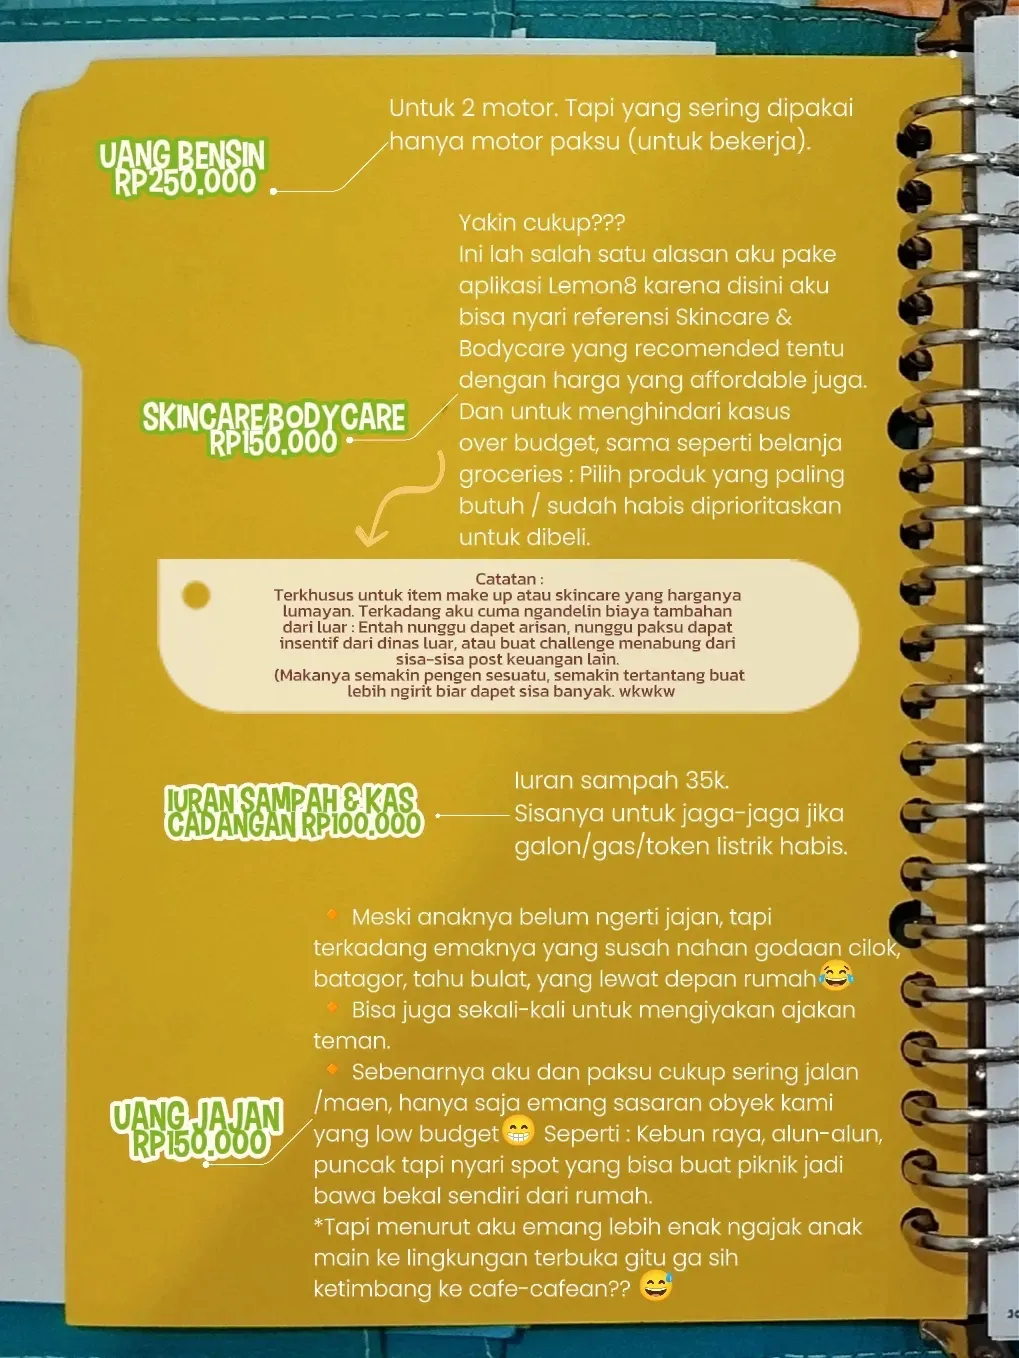 UANG BENSIN
RP250.000
Untuk 2 motor. Tapi yang sering dipakai
hanya motor paksu (untuk bekerja).
SKINCARE/BODYCARE
RP150.000
Yakin cukup???
Ini lah salah satu alasan aku pake
aplikasi Lemon8 karena disini aku
bisa nyari referensi Skincare &
Bodycare yang recomended tentu
dengan harga yang affordable juga.
Dan untuk menghindari kasus
over budget, sama seperti belanja
groceries : Pilih produk yang paling
butuh / sudah habis diprioritaskan
untuk dibeli.
Catatan :
Terkhusus untuk item make up atau skincare yang harganya
lumayan. Terkadang aku cuma ngandelin biaya tambahan
dari luar : Entah nunggu dapet arisan, nunggu paksu dapat
insentif dari dinas luar, atau buat challenge menabung dari
sisa-sisa post keuangan lain.
(Makanya semakin pengen sesuatu, semakin tertantang buat
lebih ngirit biar dapet sisa banyak. wkwkw
IURAN SAMPAH & KAS
CADANGAN RP100.000
Iuran sampah 35k.
Sisanya untuk jaga-jaga jika
galon/gas/token listrik habis.
UANG JAJAN
RP150.000
🔸 Meski anaknya belum ngerti jajan, tapi
terkadang emaknya yang susah nahan godaan cilok,
batagor, tahu bulat, yang lewat depan rumah😂
🔸 Bisa juga sekali-kali untuk mengiyakan ajakan
teman.
🔸 Sebenarnya aku dan paksu cukup sering jalan
/maen, hanya saja emang sasaran obyek kami
yang low budget😁 Seperti : Kebun raya, alun-alun,
puncak tapi nyari spot yang bisa buat piknik jadi
bawa bekal sendiri dari rumah.
*Tapi menurut aku emang lebih enak ngajak anak
main ke lingkungan terbuka gitu ga sih
ketimbang ke cafe-cafean?? 😅